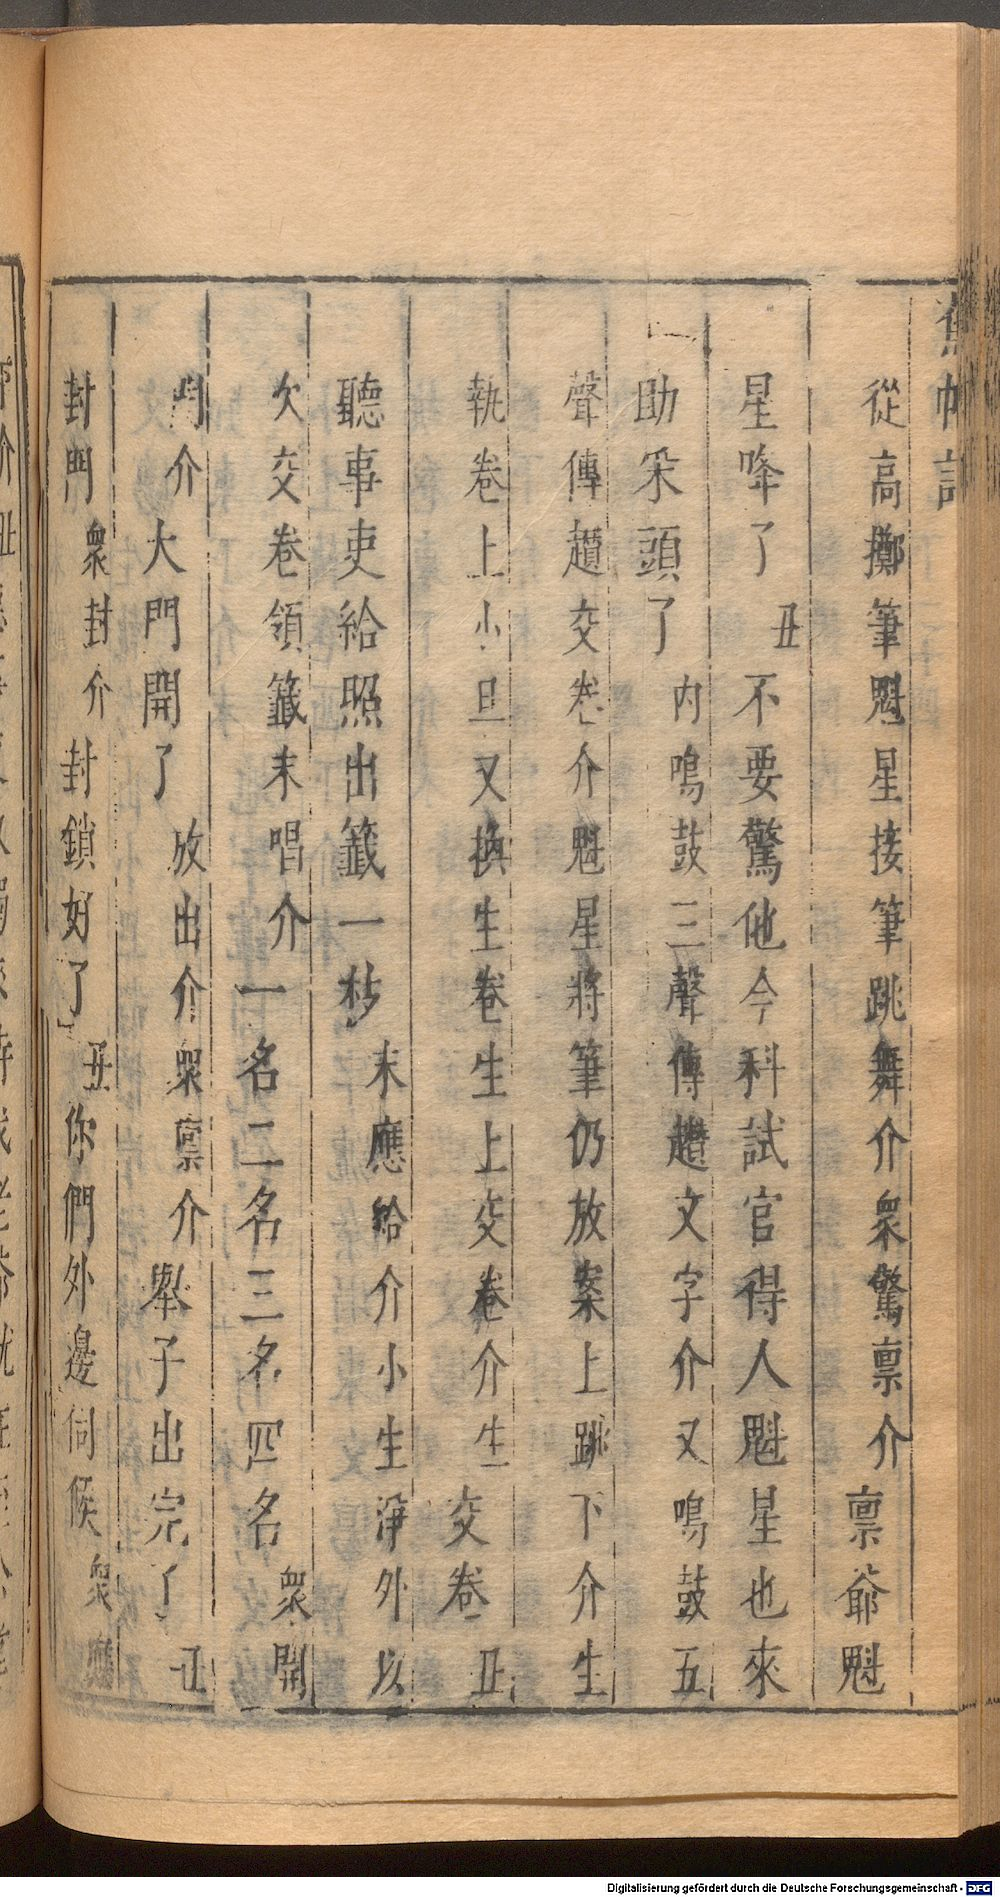 蕉帕記
從高擲筆魁星接筆跳舞介衆驚禀介禀爺魁
星降了丑不要驚他今科試官得人魁星也來
助采頭了內鳴鼓三聲傳趲文字介又鳴鼓五
聲傳趲交卷介魁星將筆仍放案上跳下介生
執卷上小旦又換生卷生上交卷介生交卷丑
聽事吏給照出籤一枚末應給介小生淨外以
次交卷領籤末唱介一名二名三名四名衆開
門介大門開了放出介衆禀介舉子出完了丑
封門衆封介封鎖好了丑你們外邊伺候衆應
Digitalisierung gefördert durch die Deutsche Forschungsgemeinschaft - DFG